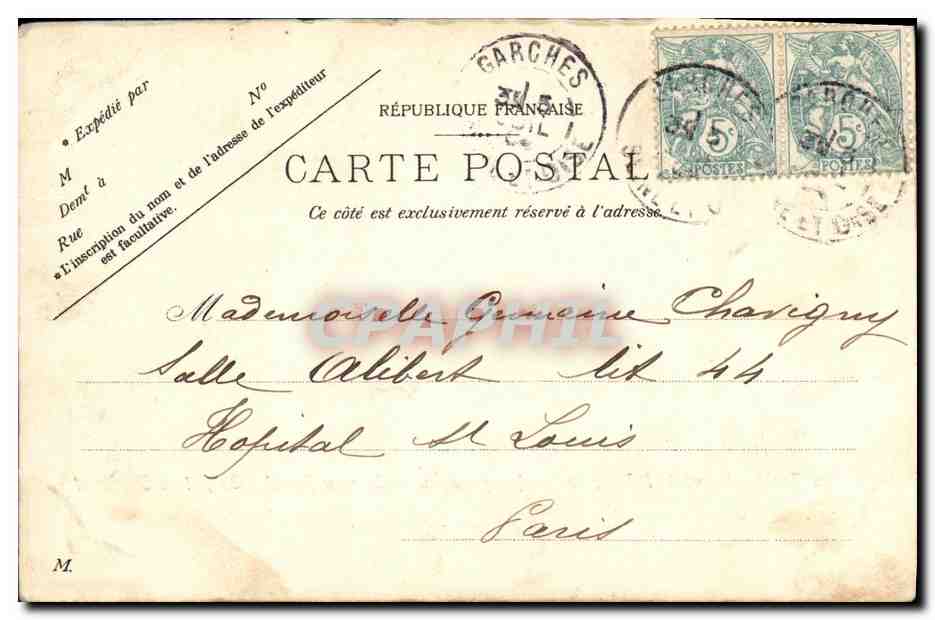 * Expédié par
M N°
Demt à
Rue
* L'inscription du nom et de l'adresse de l'expéditeur
est facultative.
GARCHES
RÉPUBLIQUE FRANÇAISE
CARTE POSTAL
Ce côté est exclusivement réservé à l'adresse.
5c 5c
POSTES POSTES
ET OISE
CPAPHIL
Mademoiselle Germaine Chavigny
Salle Alibert lit 44
Hopital St Louis
Paris
M.